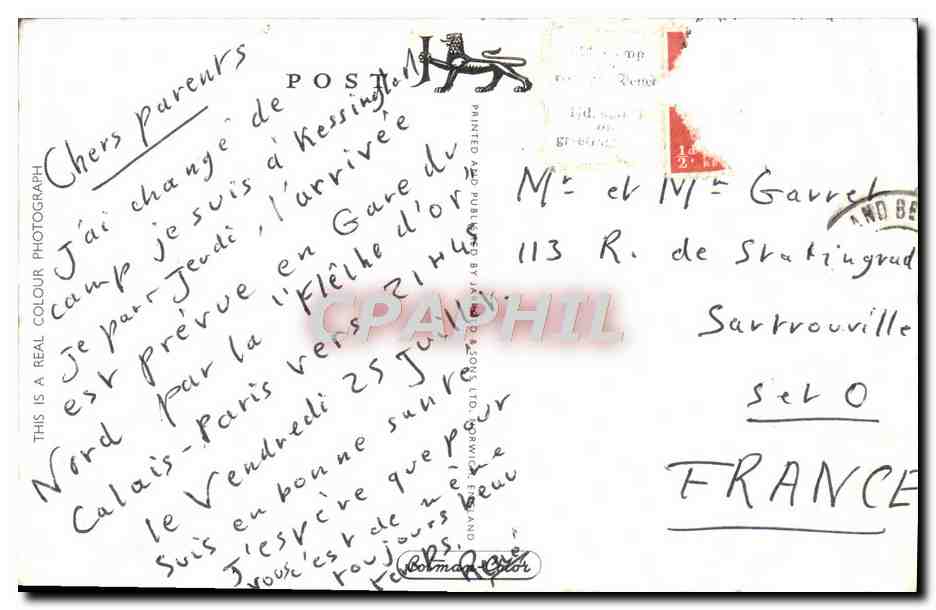 POST
Chers parents
J'ai changé de
camp je suis à Kessington
je par Jeudi, l'arrivée
est prévue en Gare du
Nord par la "Flêlhe d'or"
Calais-Paris vers 21H45
le Vendredi 25 Juillet
suis en bonne santé
J'espère que pour
vous c'est de même
toujours beau
temps. René
THIS IS A REAL COLOUR PHOTOGRAPH
PRINTED AND PUBLISHED BY JARROLD & SONS LTD. NORWICH, ENGLAND
Cotman-Color
1/2
AND BE
Mr et Mm Garret
113 R. de Statingrad
Sartrouville
S et O
FRANCE
CPAPHIL